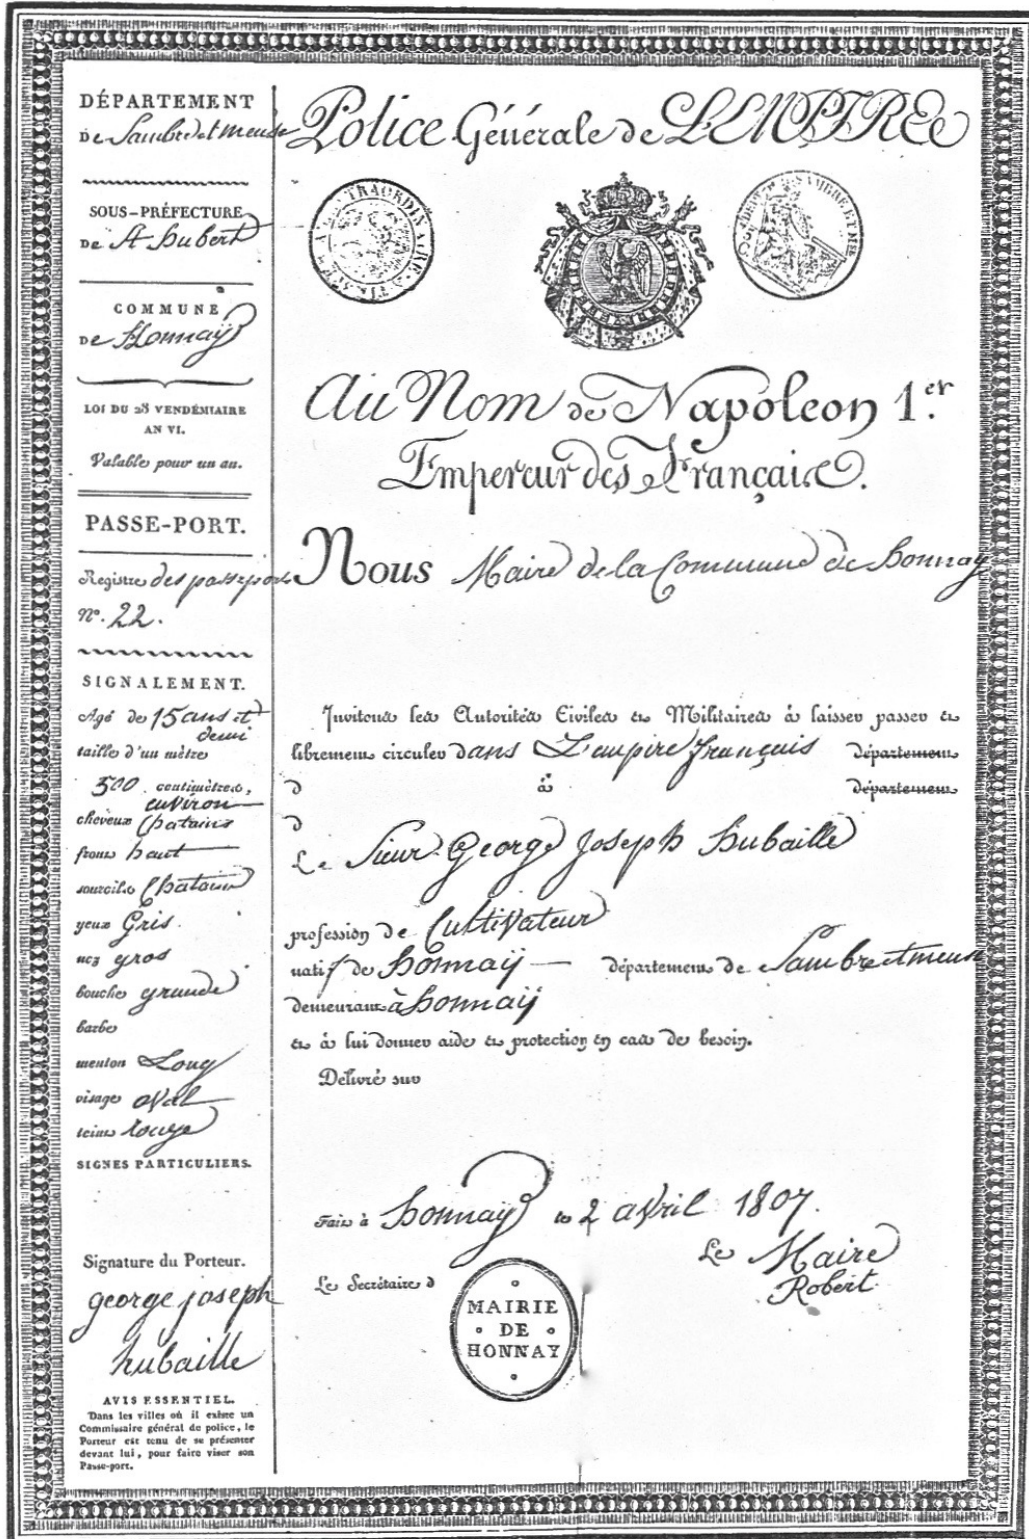 DÉPARTEMENT
De Sambre et meuse
SOUS-PRÉFECTURE
De St hubert
COMMUNE
De Honnaÿ
LOI DU 28 VENDÉMIAIRE
AN VI.
Valable pour un an.
PASSE-PORT.
Registre des passeports
N°. 22.
SIGNALEMENT.
Agé de 15 ans et
demi
taille d'un mètre
500 centimètres,
environ
cheveux Chatains
front haut
sourcils Chatain
yeux Gris.
nez gros
bouche grande
barbe
menton Long
visage oval
teint rouge
SIGNES PARTICULIERS.
Signature du Porteur.
george joseph
hubaille
AVIS ESSENTIEL.
Dans les villes où il existe un
Commissaire général de police, le
Porteur est tenu de se présenter
devant lui, pour faire viser son
Passe-port.
Police Générale de L'EMPIRE
Au Nom de Napoleon 1.er
Empereur des Français.
Nous Maire de la Commune de honnay
Invitons les Autorités Civiles et Militaires à laisser passer et
librement circuler dans L'empire français département
d à département
d
Le Sieur George Joseph hubaille
profession de Cultivateur
natif de honnaÿ département de Sambre et meuse
demeurant à honnaÿ
et à lui donner aide et protection en cas de besoin.
Délivré sur
Fait à honnay le 2 avril 1807.
Le Maire
Robert
Le Secrétaire d
MAIRIE
DE
HONNAY